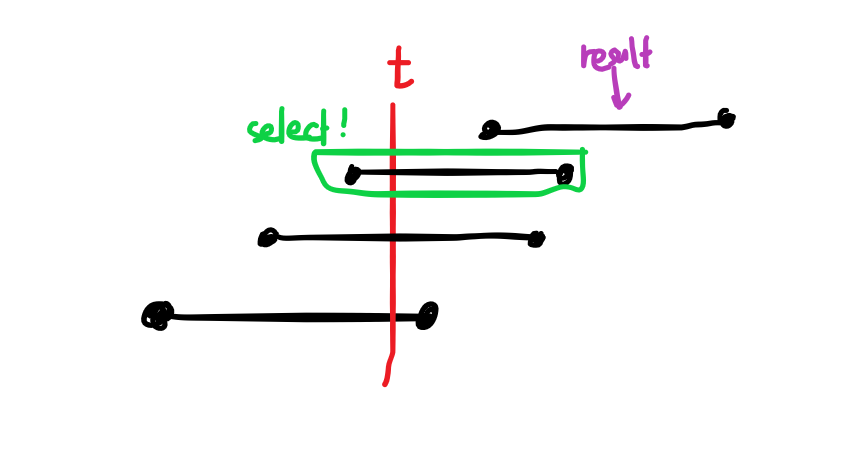 t
result
select!